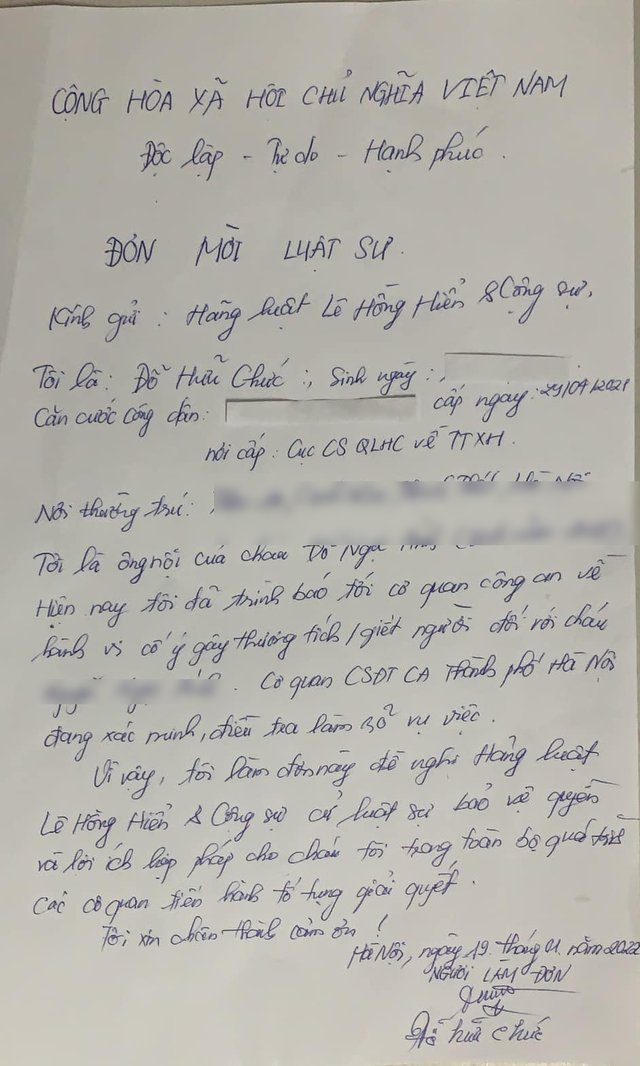 CỘNG HÒA XÃ HỘI CHỦ NGHĨA VIỆT NAM
Độc lập - Tự do - Hạnh phúc.
ĐƠN MỜI LUẬT SƯ.
Kính gửi: Hãng luật Lê Hồng Hiển & Cộng sự,
Tôi là: Đỗ Hữu Chức:, Sinh ngày:
Căn cước công dân: cấp ngày: 29/04/2021
nơi cấp: Cục CS QLHC về TTXH.
Nơi thường trú:
Tôi là ông nội của cháu Đỗ
Hiện nay tôi đã trình báo tới cơ quan công an về
hành vi cố ý gây thương tích/giết người đối với cháu
. Cơ quan CSĐT CA Thành phố Hà Nội
đang xác minh, điều tra làm rõ vụ việc.
Vì vậy, tôi làm đơn này đề nghị Hãng luật
Lê Hồng Hiển & Cộng sự cử luật sư bảo vệ quyền
và lợi ích hợp pháp cho cháu tôi trong toàn bộ quá trình
các cơ quan tiến hành tố tụng giải quyết.
Tôi xin chân thành cảm ơn!
Hà Nội, ngày 19 tháng 01 năm 2022
NGƯỜI LÀM ĐƠN
Đỗ Hữu Chức